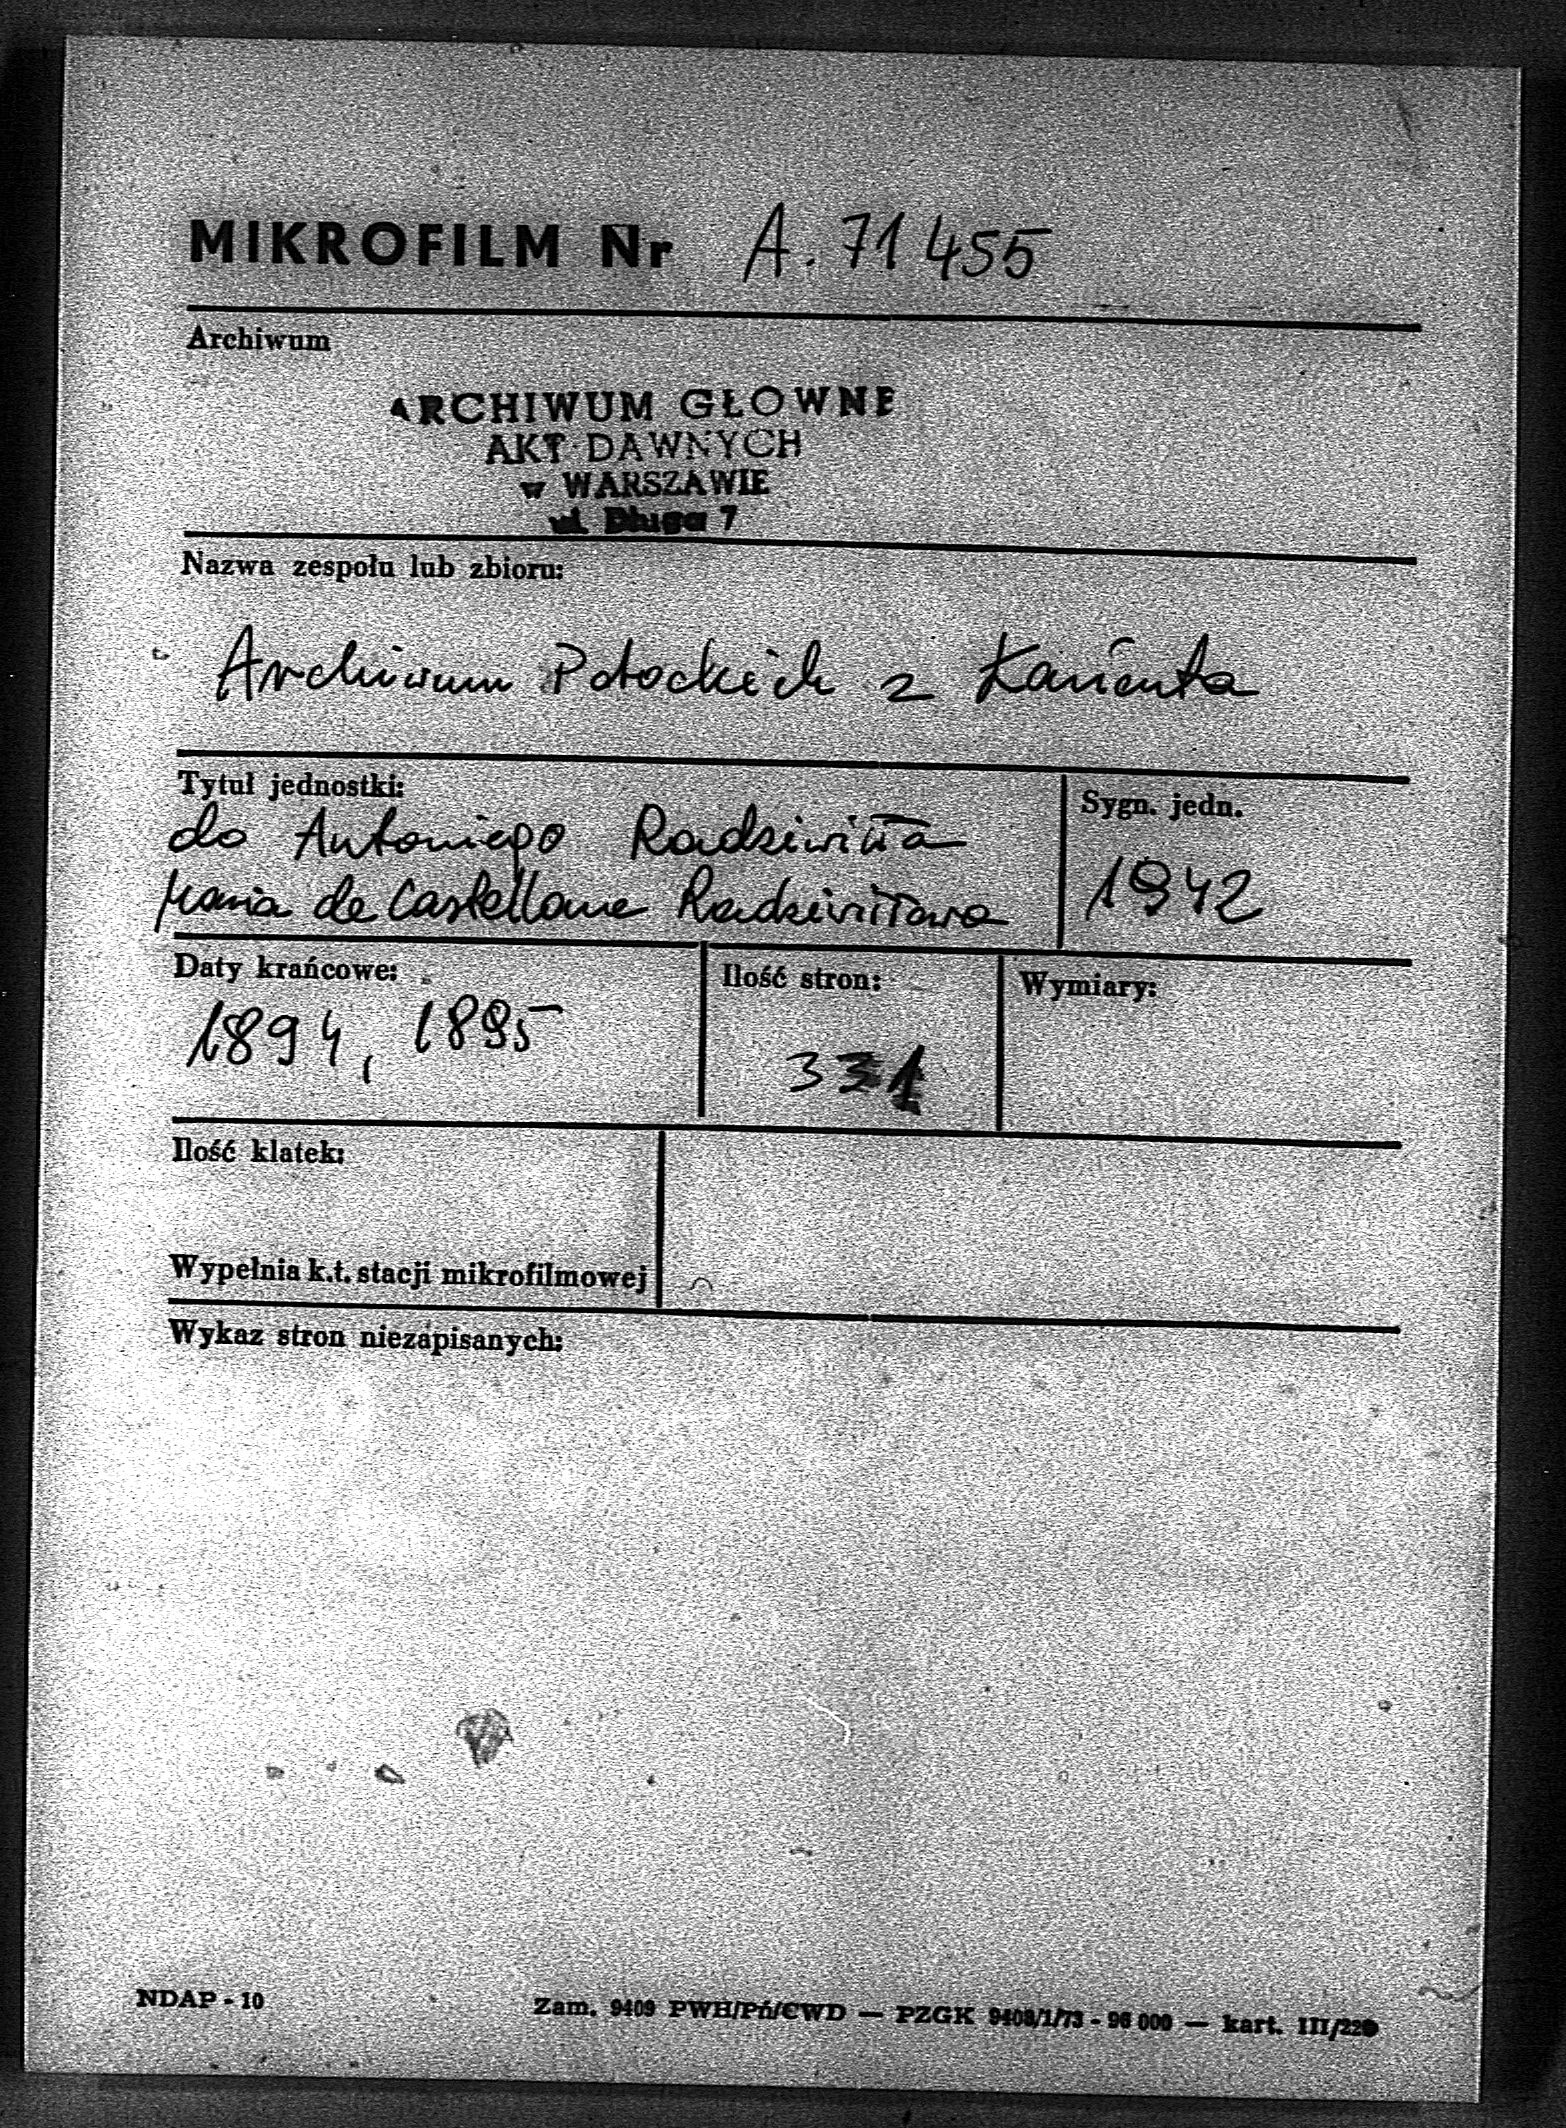 MIKROFILM Nr A. 71455
Archiwum
ARCHIWUM GŁOWNE
AKT DAWNYCH
w WARSZAWIE
ul. Długa 7
Nazwa zespołu lub zbioru:
Archiwum Potockich z Łańcuta
Tytuł jednostki:
Sygn. jedn.
do Antoniego Radziwiłła
Maria de Castellane Radziwiłłowa
1942
Daty krańcowe:
Ilość stron:
Wymiary:
1894, 1895
331
Ilość klatek:
Wypełnia k.t. stacji mikrofilmowej
Wykaz stron niezapisanych:
NDAP - 10
Zam. 9409 PWH/Pń/CWD — PZGK 9408/1/73 - 96 000 — kart. III/220